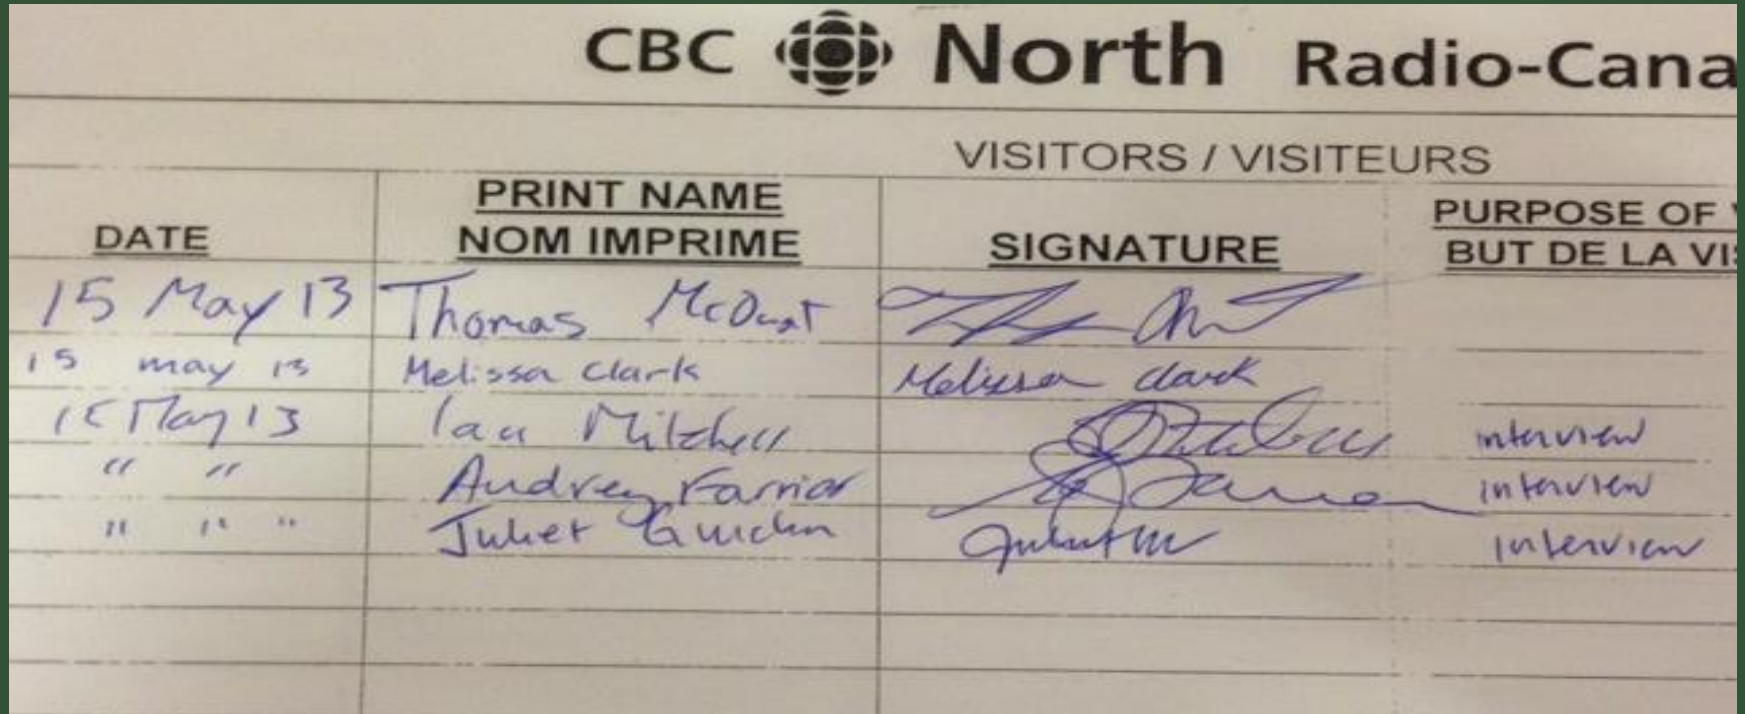 CBC North Radio-Cana
VISITORS / VISITEURS
DATE PRINT NAME NOM IMPRIME SIGNATURE PURPOSE OF V BUT DE LA VIS
15 May 13 Thomas
15 may 13 Melissa Clark Melissa Clark
15 May 13 Ian Mitchell interview
" " Audrey Farrior interview
" " " Juliet interview